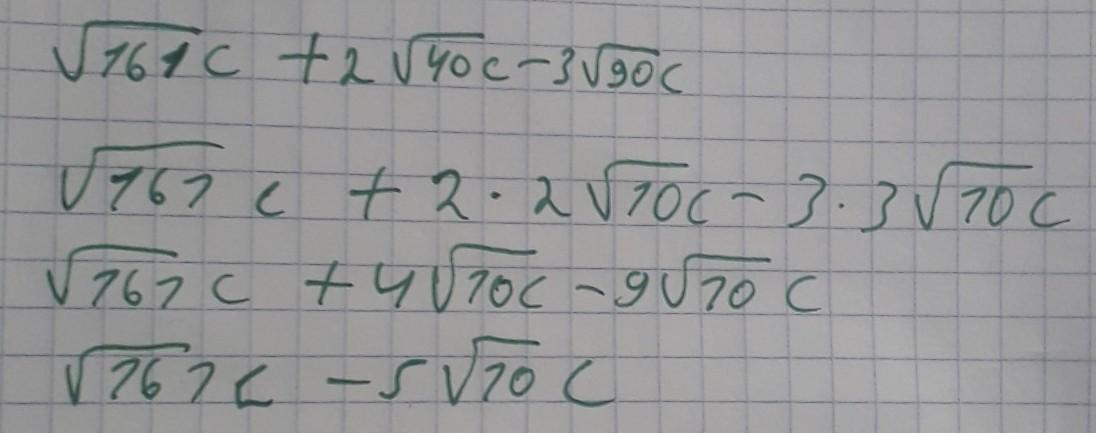 √161c + 2√40c - 3√90c
√161 c + 2 · 2√10c - 3 · 3√10 c
√161 c + 4√10c - 9√10 c
√161 c - 5√10 c